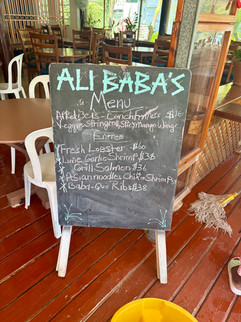 ALI BABA'S
Menu
Conch Fritters $16
Veggie Stringroll, Spicy mango Wings
Entrees
*Fresh Lobster $60
*Lime Garlic Shrimp $38
*Grill Salmon $32
*Asian noodles Chic n Shrimp
*Baby-Que Ribs $38